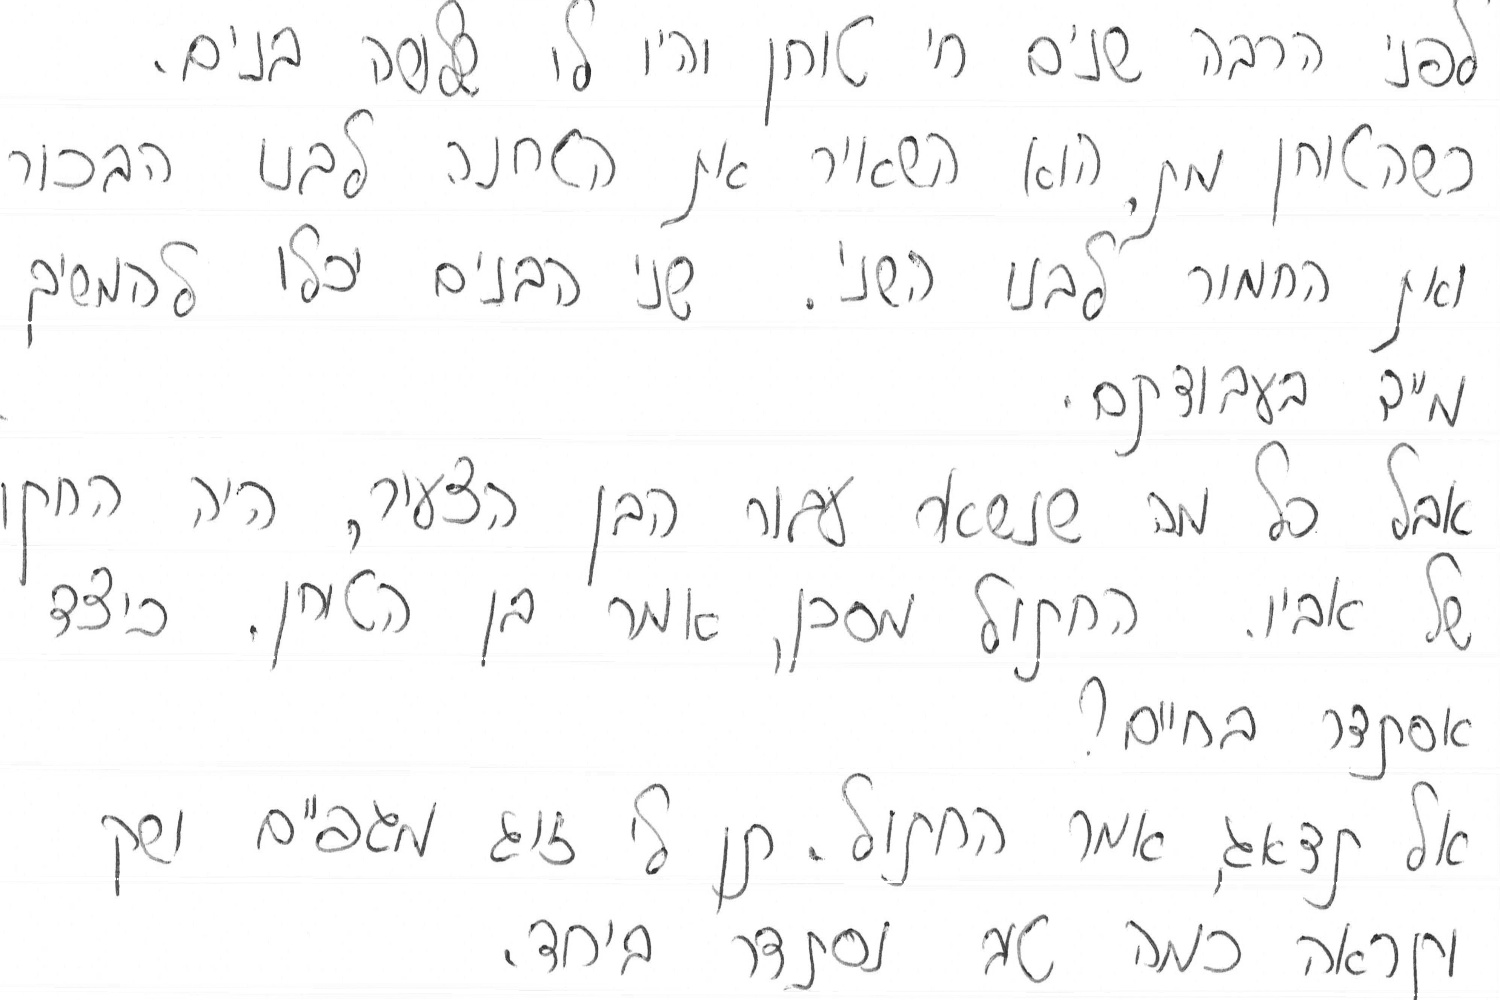 לפני הרבה שנים חי טוחן והיו לו שלושה בנים.
כשהטוחן מת, הוא השאיר את הטחנה לבנו הבכור
ואת החמור לבנו השני. שני הבנים יכלו להמשיך
מייד בעבודתם.
אבל כל מה שנשאר עבור הבן הצעיר, היה החתו
של אביו. החתול מסכן, אמר בן הטוחן. כיצד
אסתדר בחיים?
אל תדאג, אמר החתול. תן לי זוג מגפיים ושק
ותראה כמה טוב נסתדר ביחד.